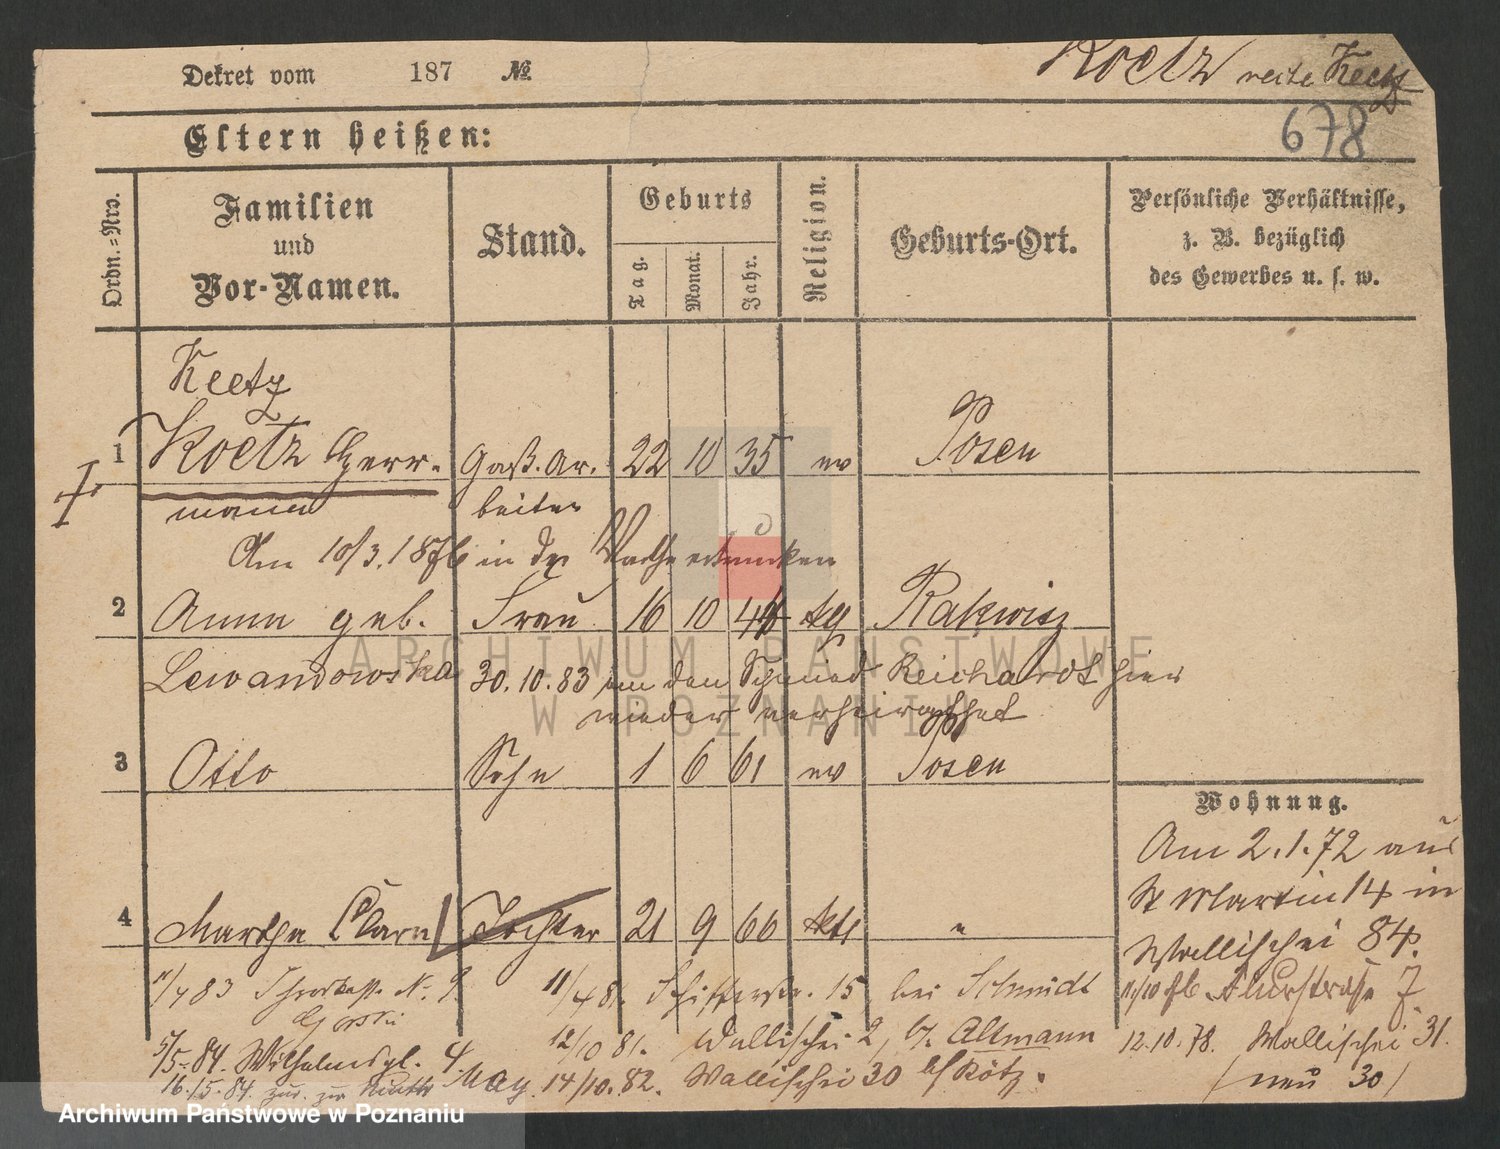 Koetz recte Keetz
Dekret vom 187 №
678
Eltern heißen:
Ordn.=Nro.
Familien und Vor-Namen.
Stand.
Geburts
Tag.
Monat.
Jahr.
Religion.
Geburts-Ort.
Persönliche Verhältnisse,
z. B. bezüglich
des Gewerbes u. s. w.
Keetz
1 Koetz Herr- Gaß. Ar. 22 10 35 ev Posen
mann beiter
Am 10/3. 1876 in der Warthe ertrunken
2 Anna geb. Frau 16 10 44 Rakwisz
Lewandowska 30.10.83 an den Schmied Reichardt hier
wieder verheirathet
3 Otto Sohn 1 6 61 ev Posen
4 Martha Clara Tochter 21 9 66 ktl "
Wohnung.
Am 2.1.72 aus
St Martin 14 in
Wallischei 84.
11/10 76 Flurstraße 7.
12.10.78. Wallischei 31.
(neu 30)
11/4 78. Schifferstr. 15 bei Schmidt
12/10 81. Wallischei 2, b/. Altmann
14/10. 82. Wallischei 30 b/ Kötz.
/4 83 N. 9
5/5.84. Wilhelmspl. 4. May.
16./5.84. zur
ARCHIWUM PAŃSTWOWE
W POZNANIU
Archiwum Państwowe w Poznaniu